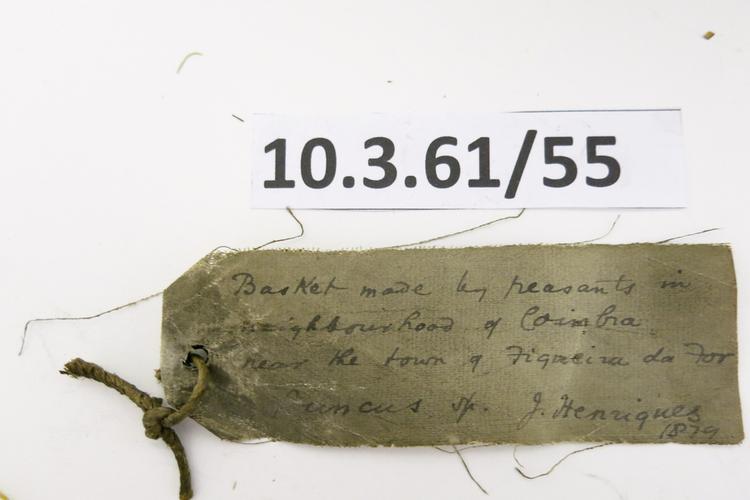 10.3.61/55
Basket made by peasants in
neighbourhood of Coimbra
near the town of Figueira da For
Juncus sp. J. Henriques
1879